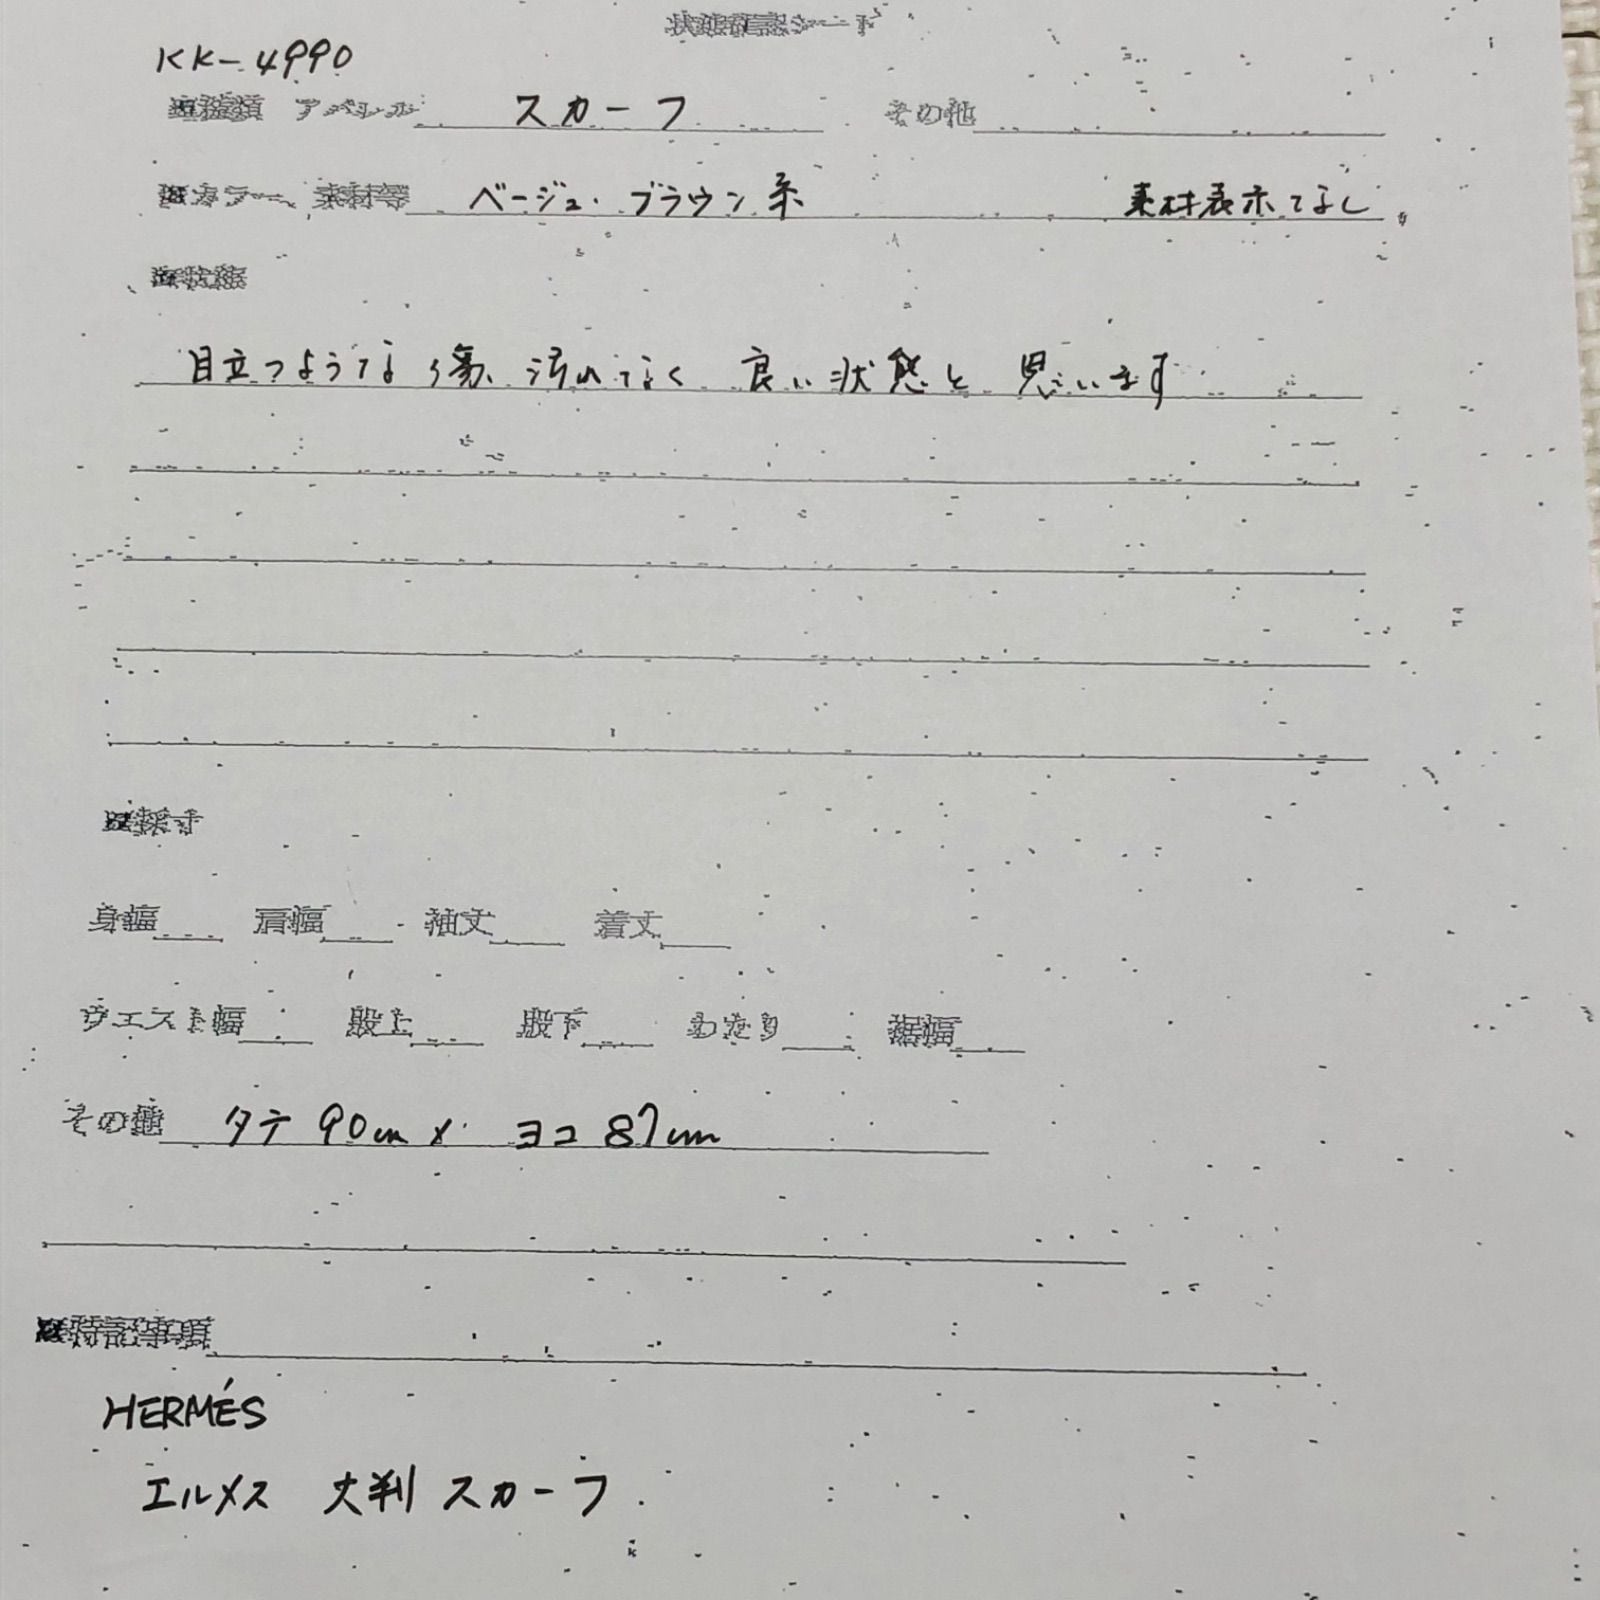 状態確認シート
KK-4990
■種類 アパレル スカーフ その他
■カラー、素材等 ベージュ・ブラウン系 素材表示なし
■状態
目立つような傷、汚れなく 良い状態と思います
■採寸
身幅 肩幅 袖丈 着丈
ウエスト幅 股上 股下 わたり 裾幅
その他 タテ 90cm × ヨコ 87cm
■特記事項
HERMÉS
エルメス 大判 スカーフ